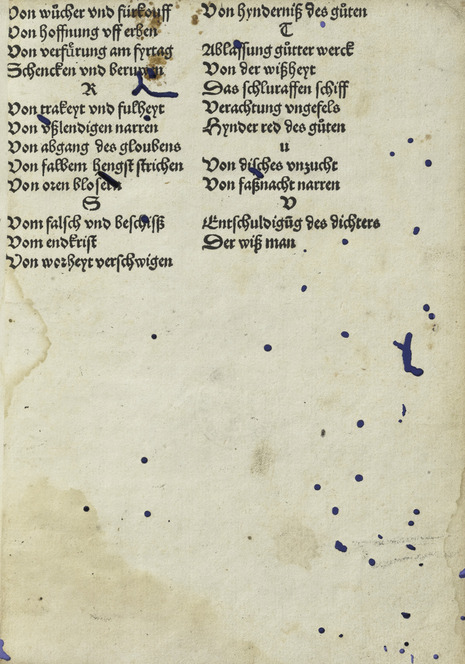 Von wůcher vnd fürkouff
Von hoffnung vff erben
Von verfürung am fyrtag
Schencken vnd beruwen
R
Von trakeyt vnd fulheyt
Von vßlendigen narren
Von abgang des gloubens
Von falbem hengst strichen
Von oren blosen
S
Vom falsch vnd beschisß
Vom endkrist
Von worheyt verschwigen
Von hynderniß des gůten
T
Ablassung gůtter werck
Von der wißheyt
Das schluraffen schiff
Verachtung vngefels
Hynder red des gůten
u
Von disches vnzucht
Von faßnacht narren
V
Entschuldigūg des dichters
Der wiß man